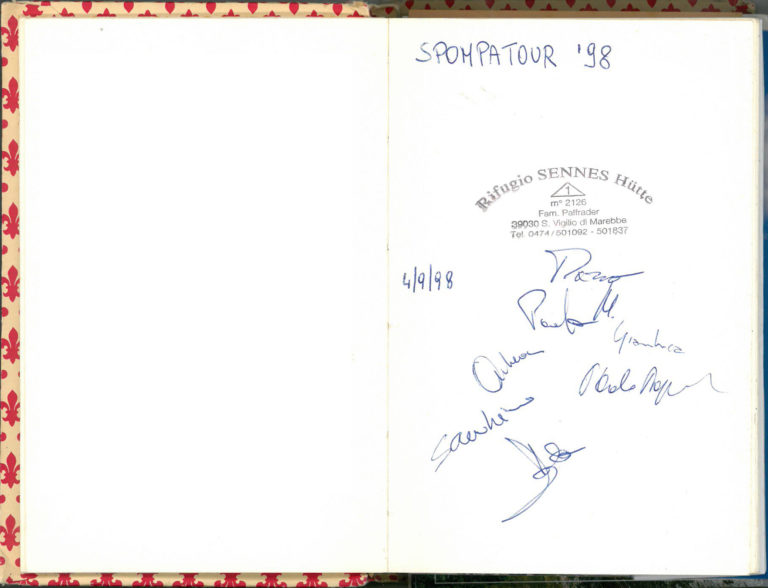 SPOMPATOUR '98
Rifugio SENNES Hütte
1
m° 2126
Fam. Palfrader
39030 S. Vigilio di Marebbe
Tel. 0474/501092 - 501837
4/9/98
Paolo M.
Gianluca
Andrea
Paolo